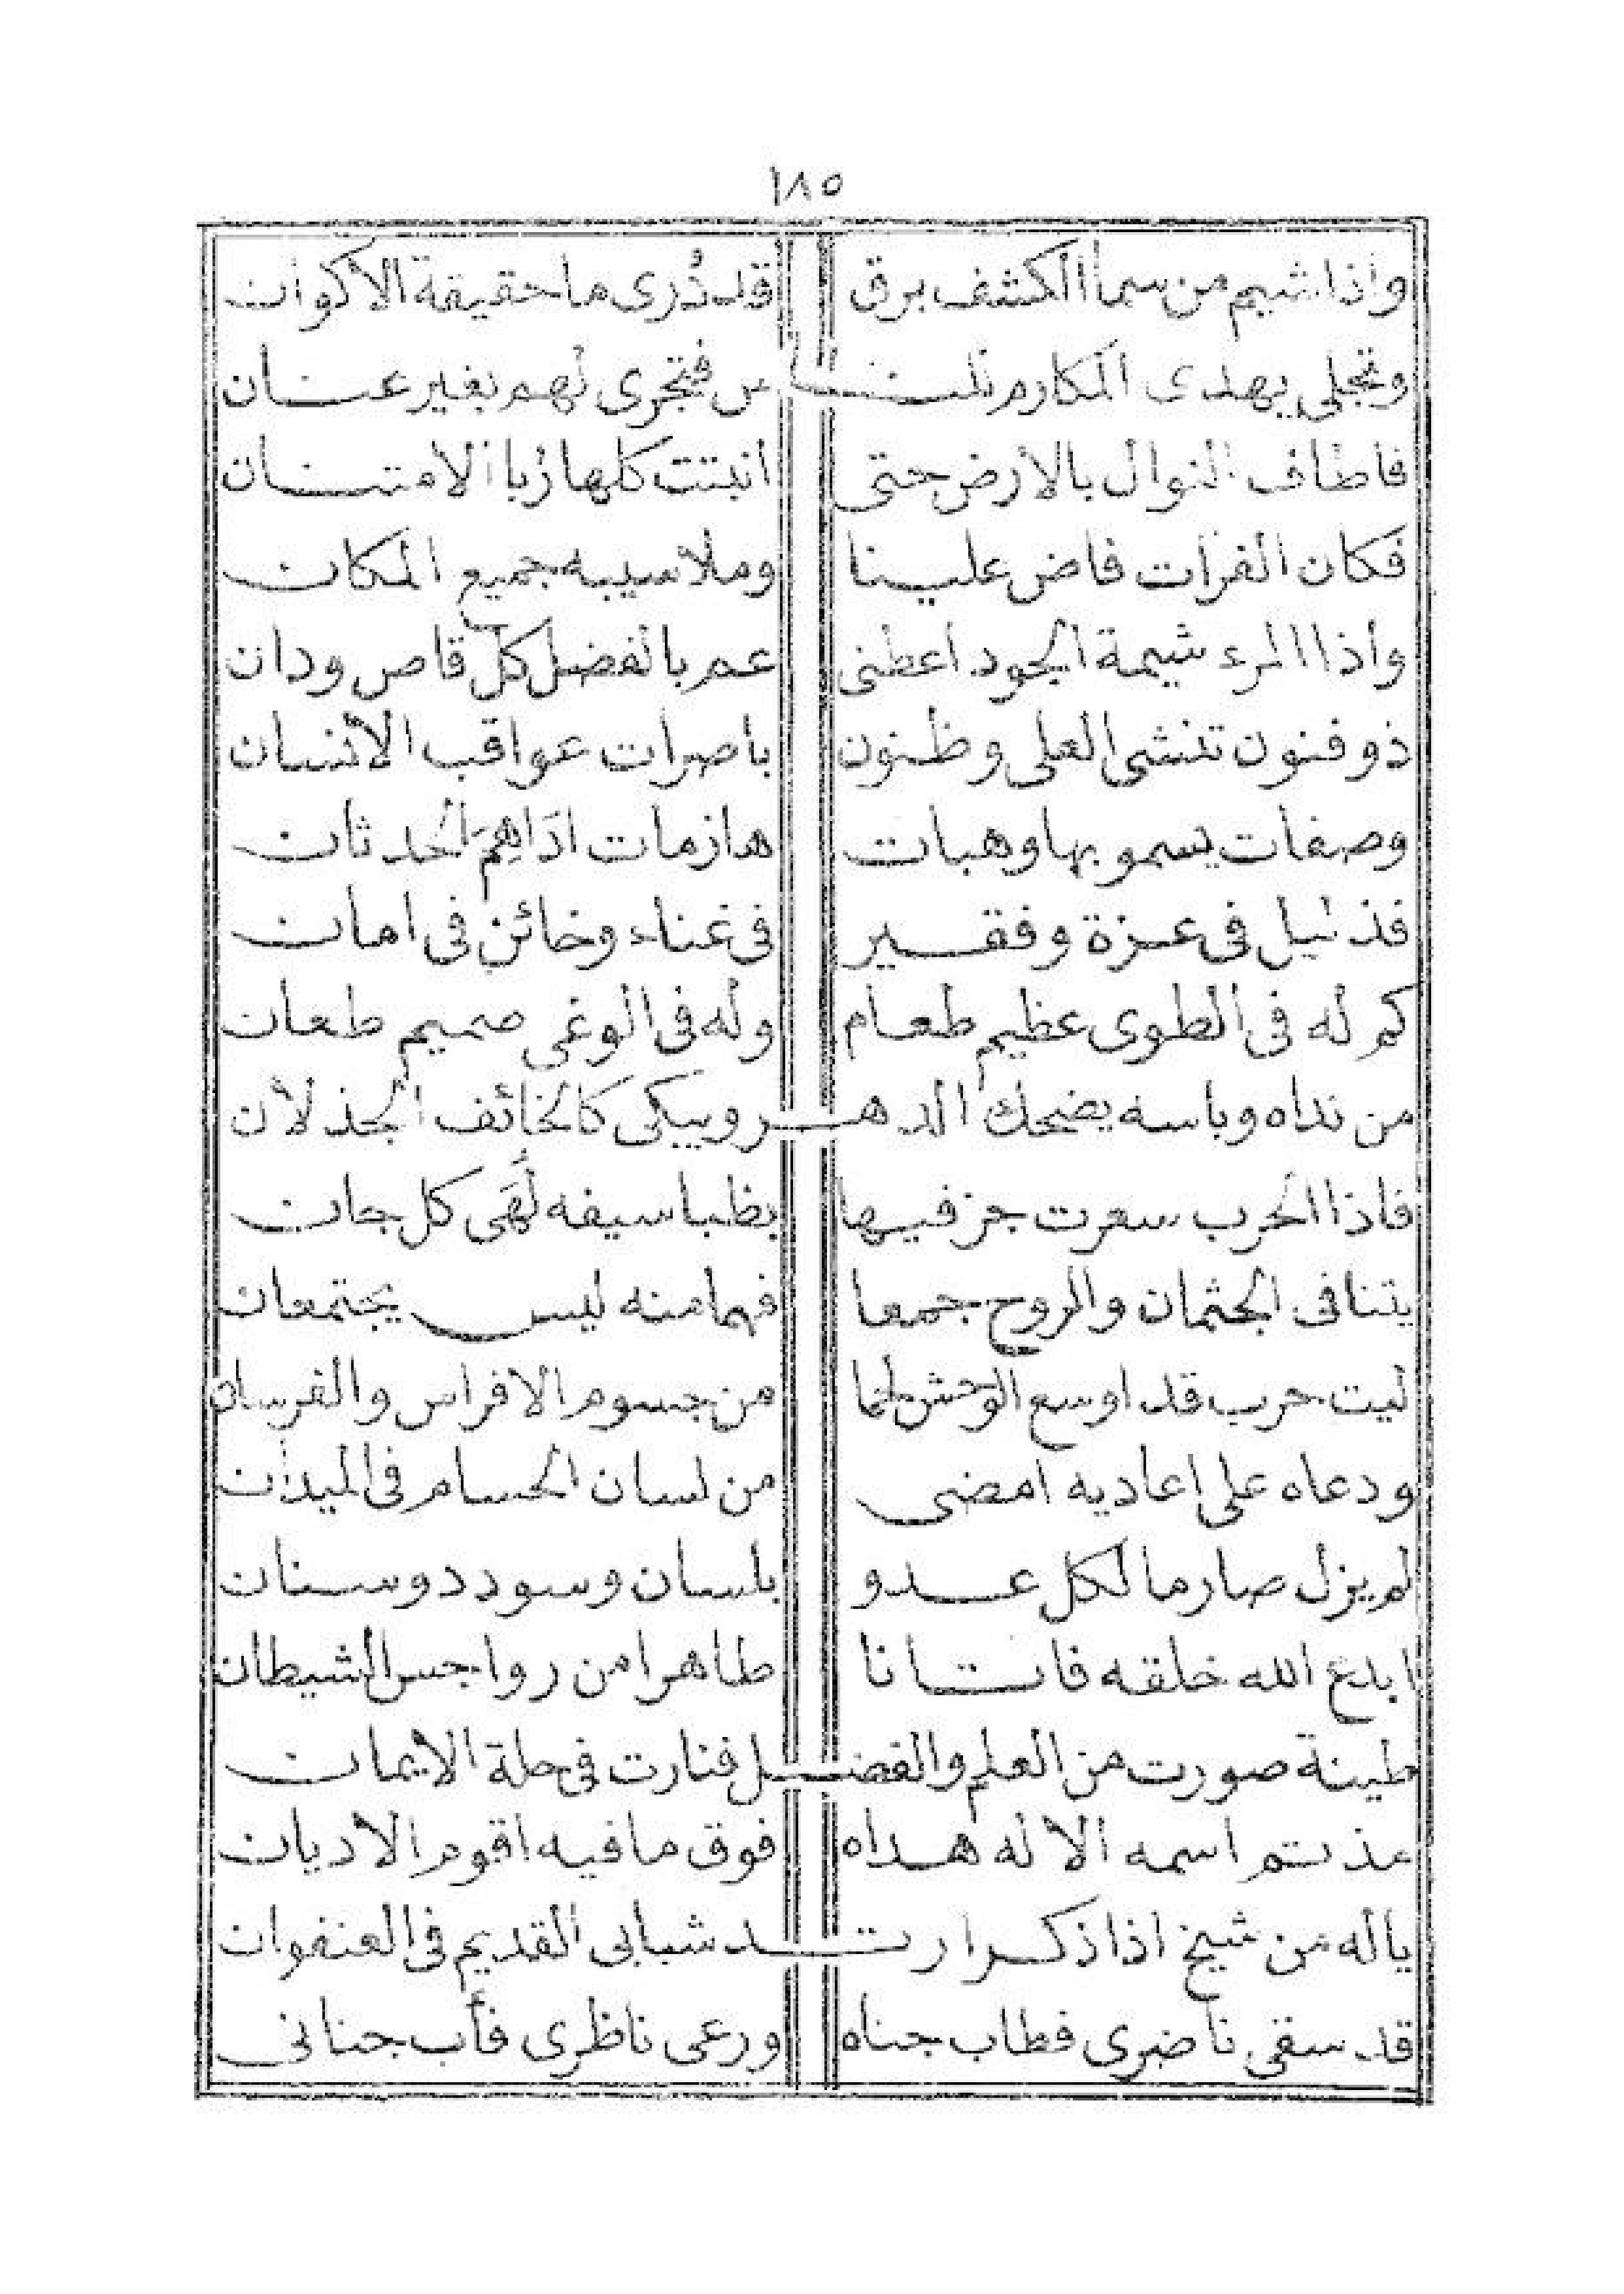 ١٨٥
واذا شيم من سماالكشف برق قد دُرى ما حقيقة الاكوان
وتجلى يهدى المكارم للنـــاس فتجرى لهم بغير عنــان
فاطاف النوال بالارض حتى انبتت كلها رُبا الامتنــان
فكان الفرات فاض علينا وملا سيبه جميع المكان
واذا المرء شيمة الجود اعطنى عم بالفضل كل قاص ودان
ذو فنون تنشى العلى وظنون باصرات عواقب الانسان
وصفات يسمو بها وهبات هازمات اداهِمَ الحدثان
فذليل فى عزة وفقــير فى غناء وخائن فى امان
كم له فى الطوى عظيم طعام وله فى الوغى صميم طعان
من نداه وباسه يضحك الدهـــر ويبكى كالخائف الجذلان
فاذا الحرب سعرت جز فيها بظبا سيفه لُهَى كل جان
يتنافى الجثمان والروح جمعا فهما منه ليس يجتمعان
ليت حرب قد اوسع الوحش لحما من جسوم الافراس والفرسان
ودعاه على اعاديه امضى من لسان الحسام فى الميدان
لم يزل صارما لكل عــدو بلسان وسودد وسنان
ابدع الله خلقه فاتــانا طاهرا من رواجس الشيطان
طينة صورت من العلم والفضـــل فنارت فى حلة الايمان
مذ اسمه الاله هــداه فوق ما فيه اقوم الاديان
ياله من شيخ اذا ذكــر ارتـــد شبابى القديم فى العنفوان
قد سقى ناضرى فطاب جناه ورعى ناظرى فأب جنانى